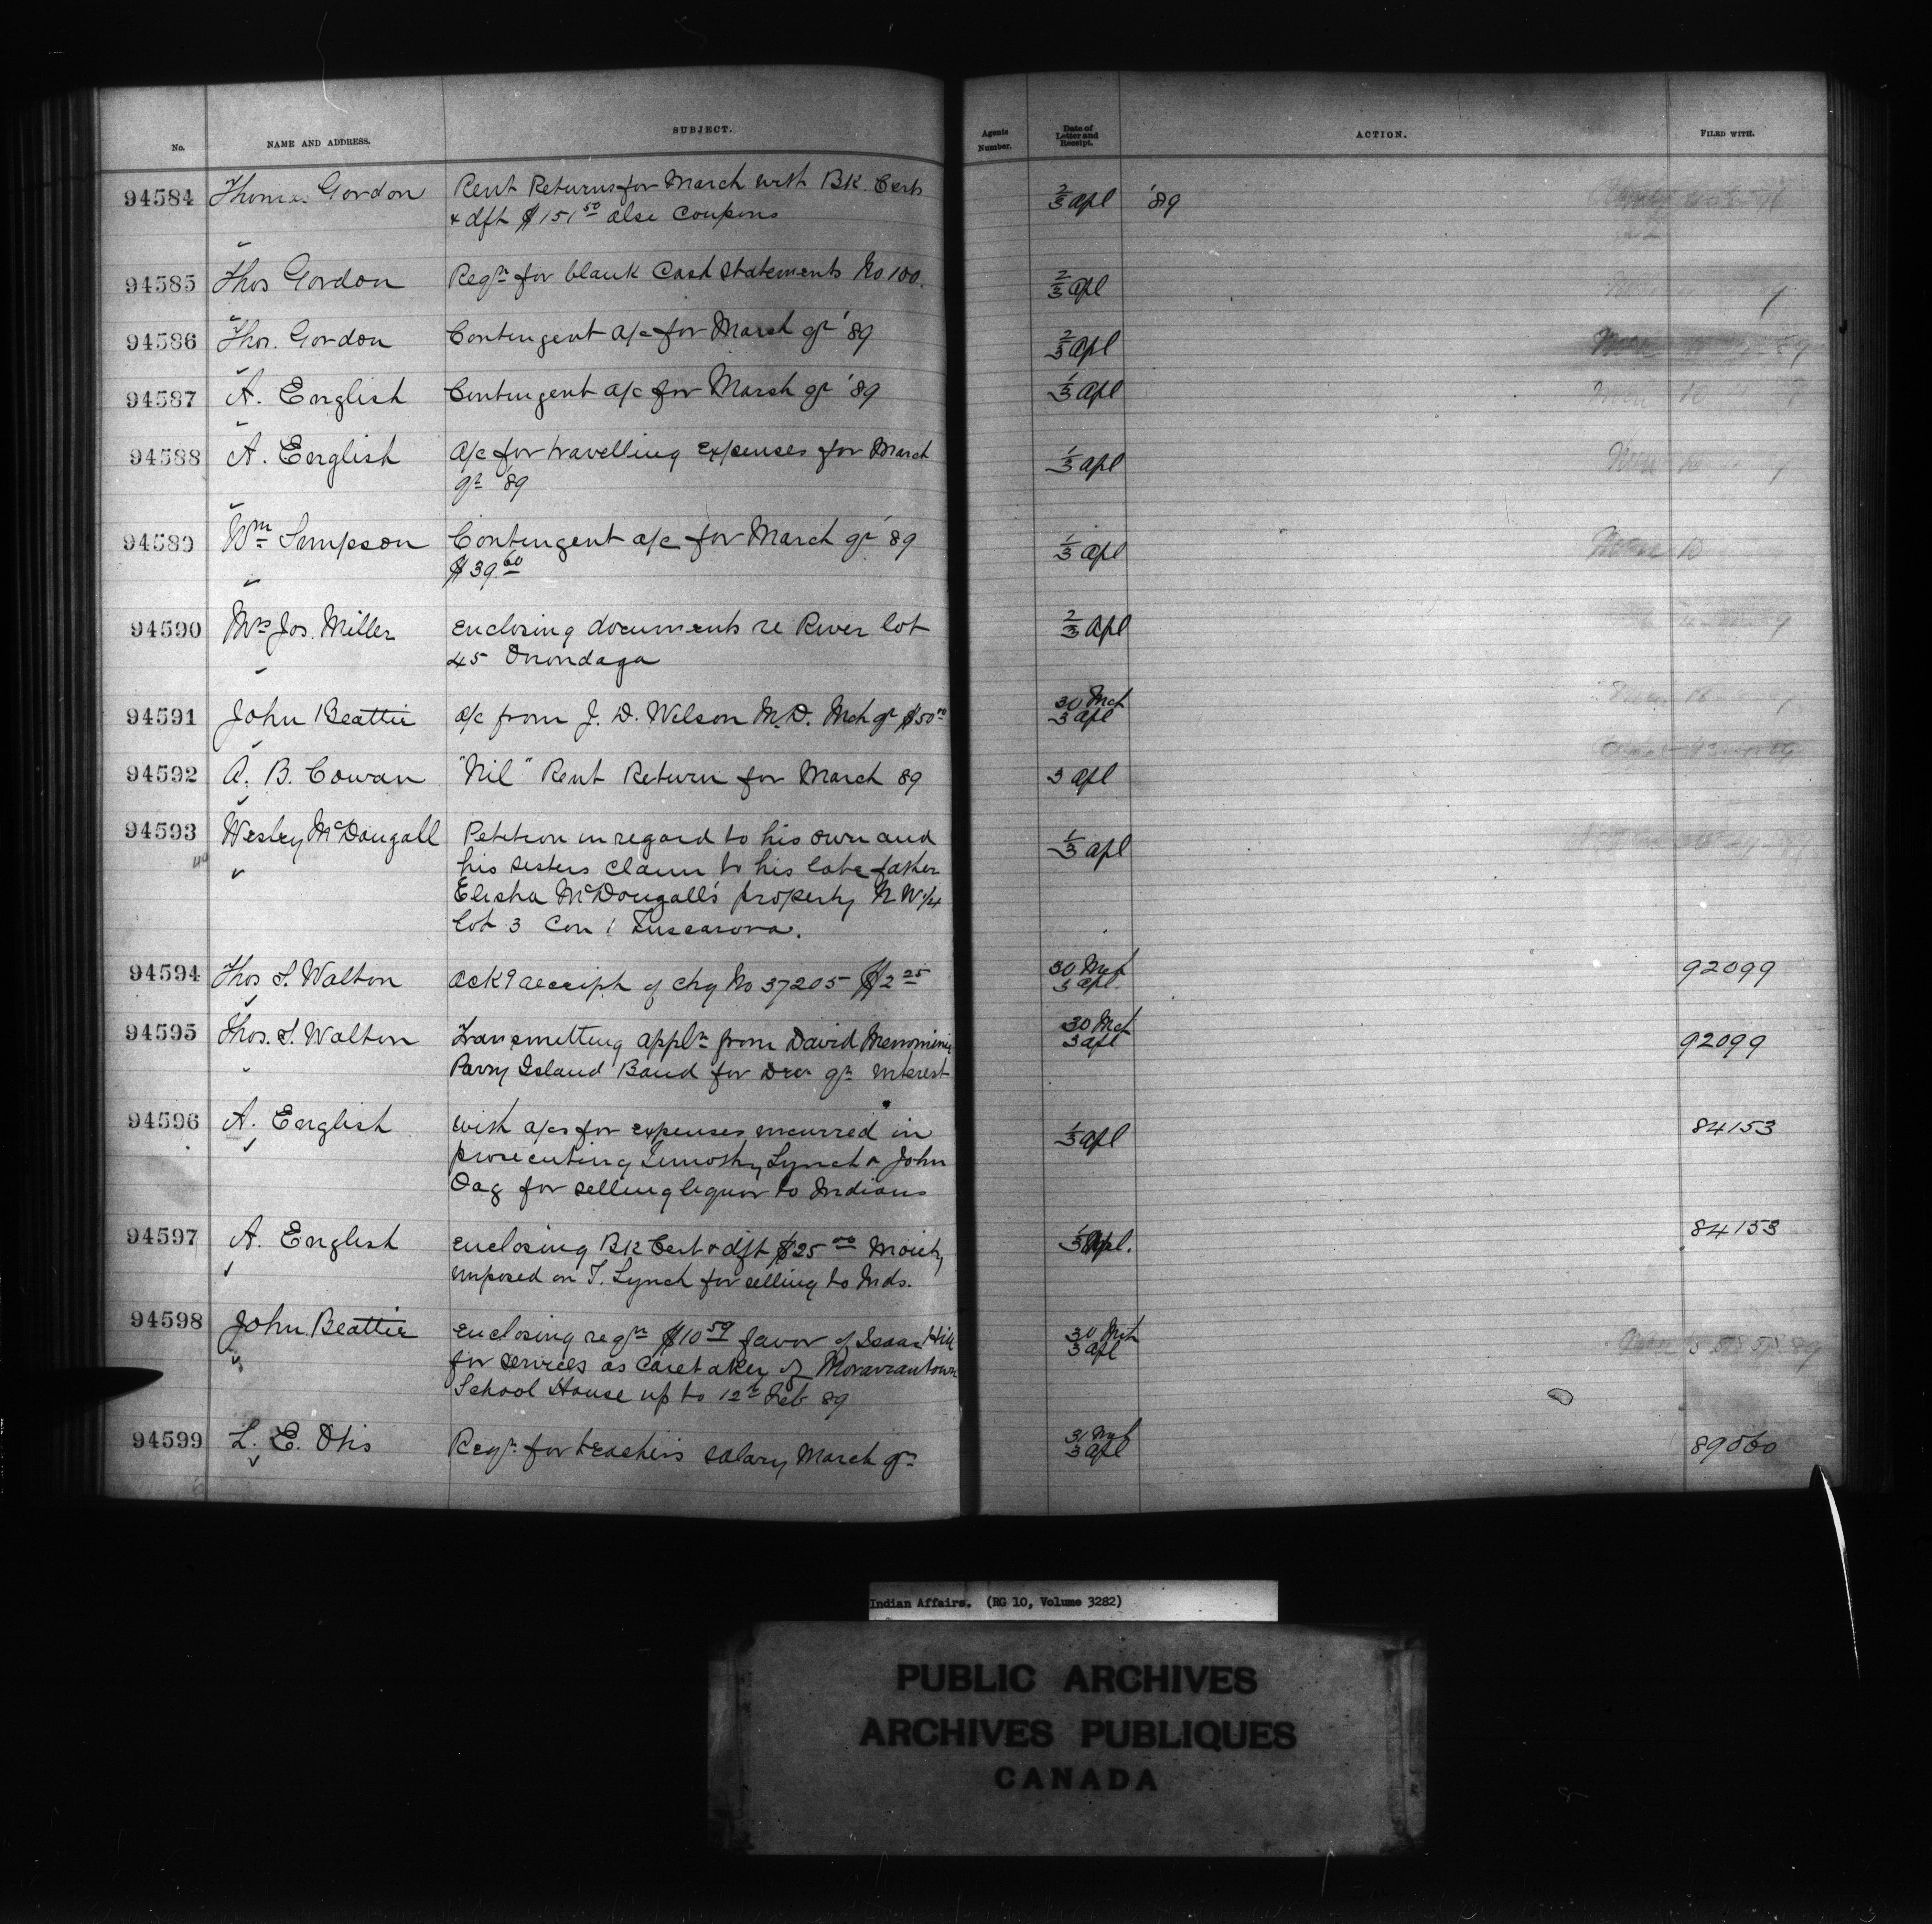 No. NAME AND ADDRESS. SUBJECT. Agents Number. Date of Letter and Receipt. ACTION. FILED WITH.
94584 Thomas Gordon Rent Returns for March with BK. Certs 2/3 Apl '89
& dft $151 50 also Coupons
94585 Thos Gordon Reqn for blank Cash Statements No 100. 2/3 Apl
94586 Thos. Gordon Contingent a/c for March qr '89 2/3 Apl
94587 A. English Contingent a/c for March qr '89 1/3 Apl
94588 A. English A/c for travelling expenses for March 1/3 Apl
qr '89
94589 Wm Simpson Contingent a/c for March qr '89 1/3 Apl
$39 60
94590 Mrs Jos. Miller Enclosing documents re River lot 2/3 Apl
45 Onondaga
94591 John Beattie a/c from J. D. Wilson M.D. Mch qr $50 00 30 Mch
3 Apl
94592 A. B. Cowan "Nil" Rent Return for March 89 3 Apl
94593 Wesley McDougall Petition in regard to his own and 1/3 Apl
his sisters claim to his late father
Elisha McDougall's property N W 1/4
lot 3 Con 1 Tuscarora.
94594 Thos S. Walton Ackg receipt of chq No 37205 $2 25 30 Mch 92099
3 Apl.
94595 Thos. S. Walton Transmitting appln from David Menominie 30 Mch 92099
3 Apl
Parry Island Band for Decr qr interest
94596 A. English With a/cs for expenses incurred in 1/3 Apl 84153
prosecuting Timothy Lynch & John
Oag for selling liquor to Indians
94597 A. English Enclosing BK Cert & dft $25 00 Moiety 1/3 Apl. 84153
imposed on T. Lynch for selling to Inds.
94598 John Beattie Enclosing reqn $10 59 favor of Isaac Hill 30 Mch
3 Apl
for services as caretaker of Moraviantown
School House up to 12th Feb 89
94599 L. E. Otis Reqn for teachers salary March qr 31 Mch
3 Apl
Indian Affairs. (RG 10, Volume 3282)
PUBLIC ARCHIVES
ARCHIVES PUBLIQUES
CANADA